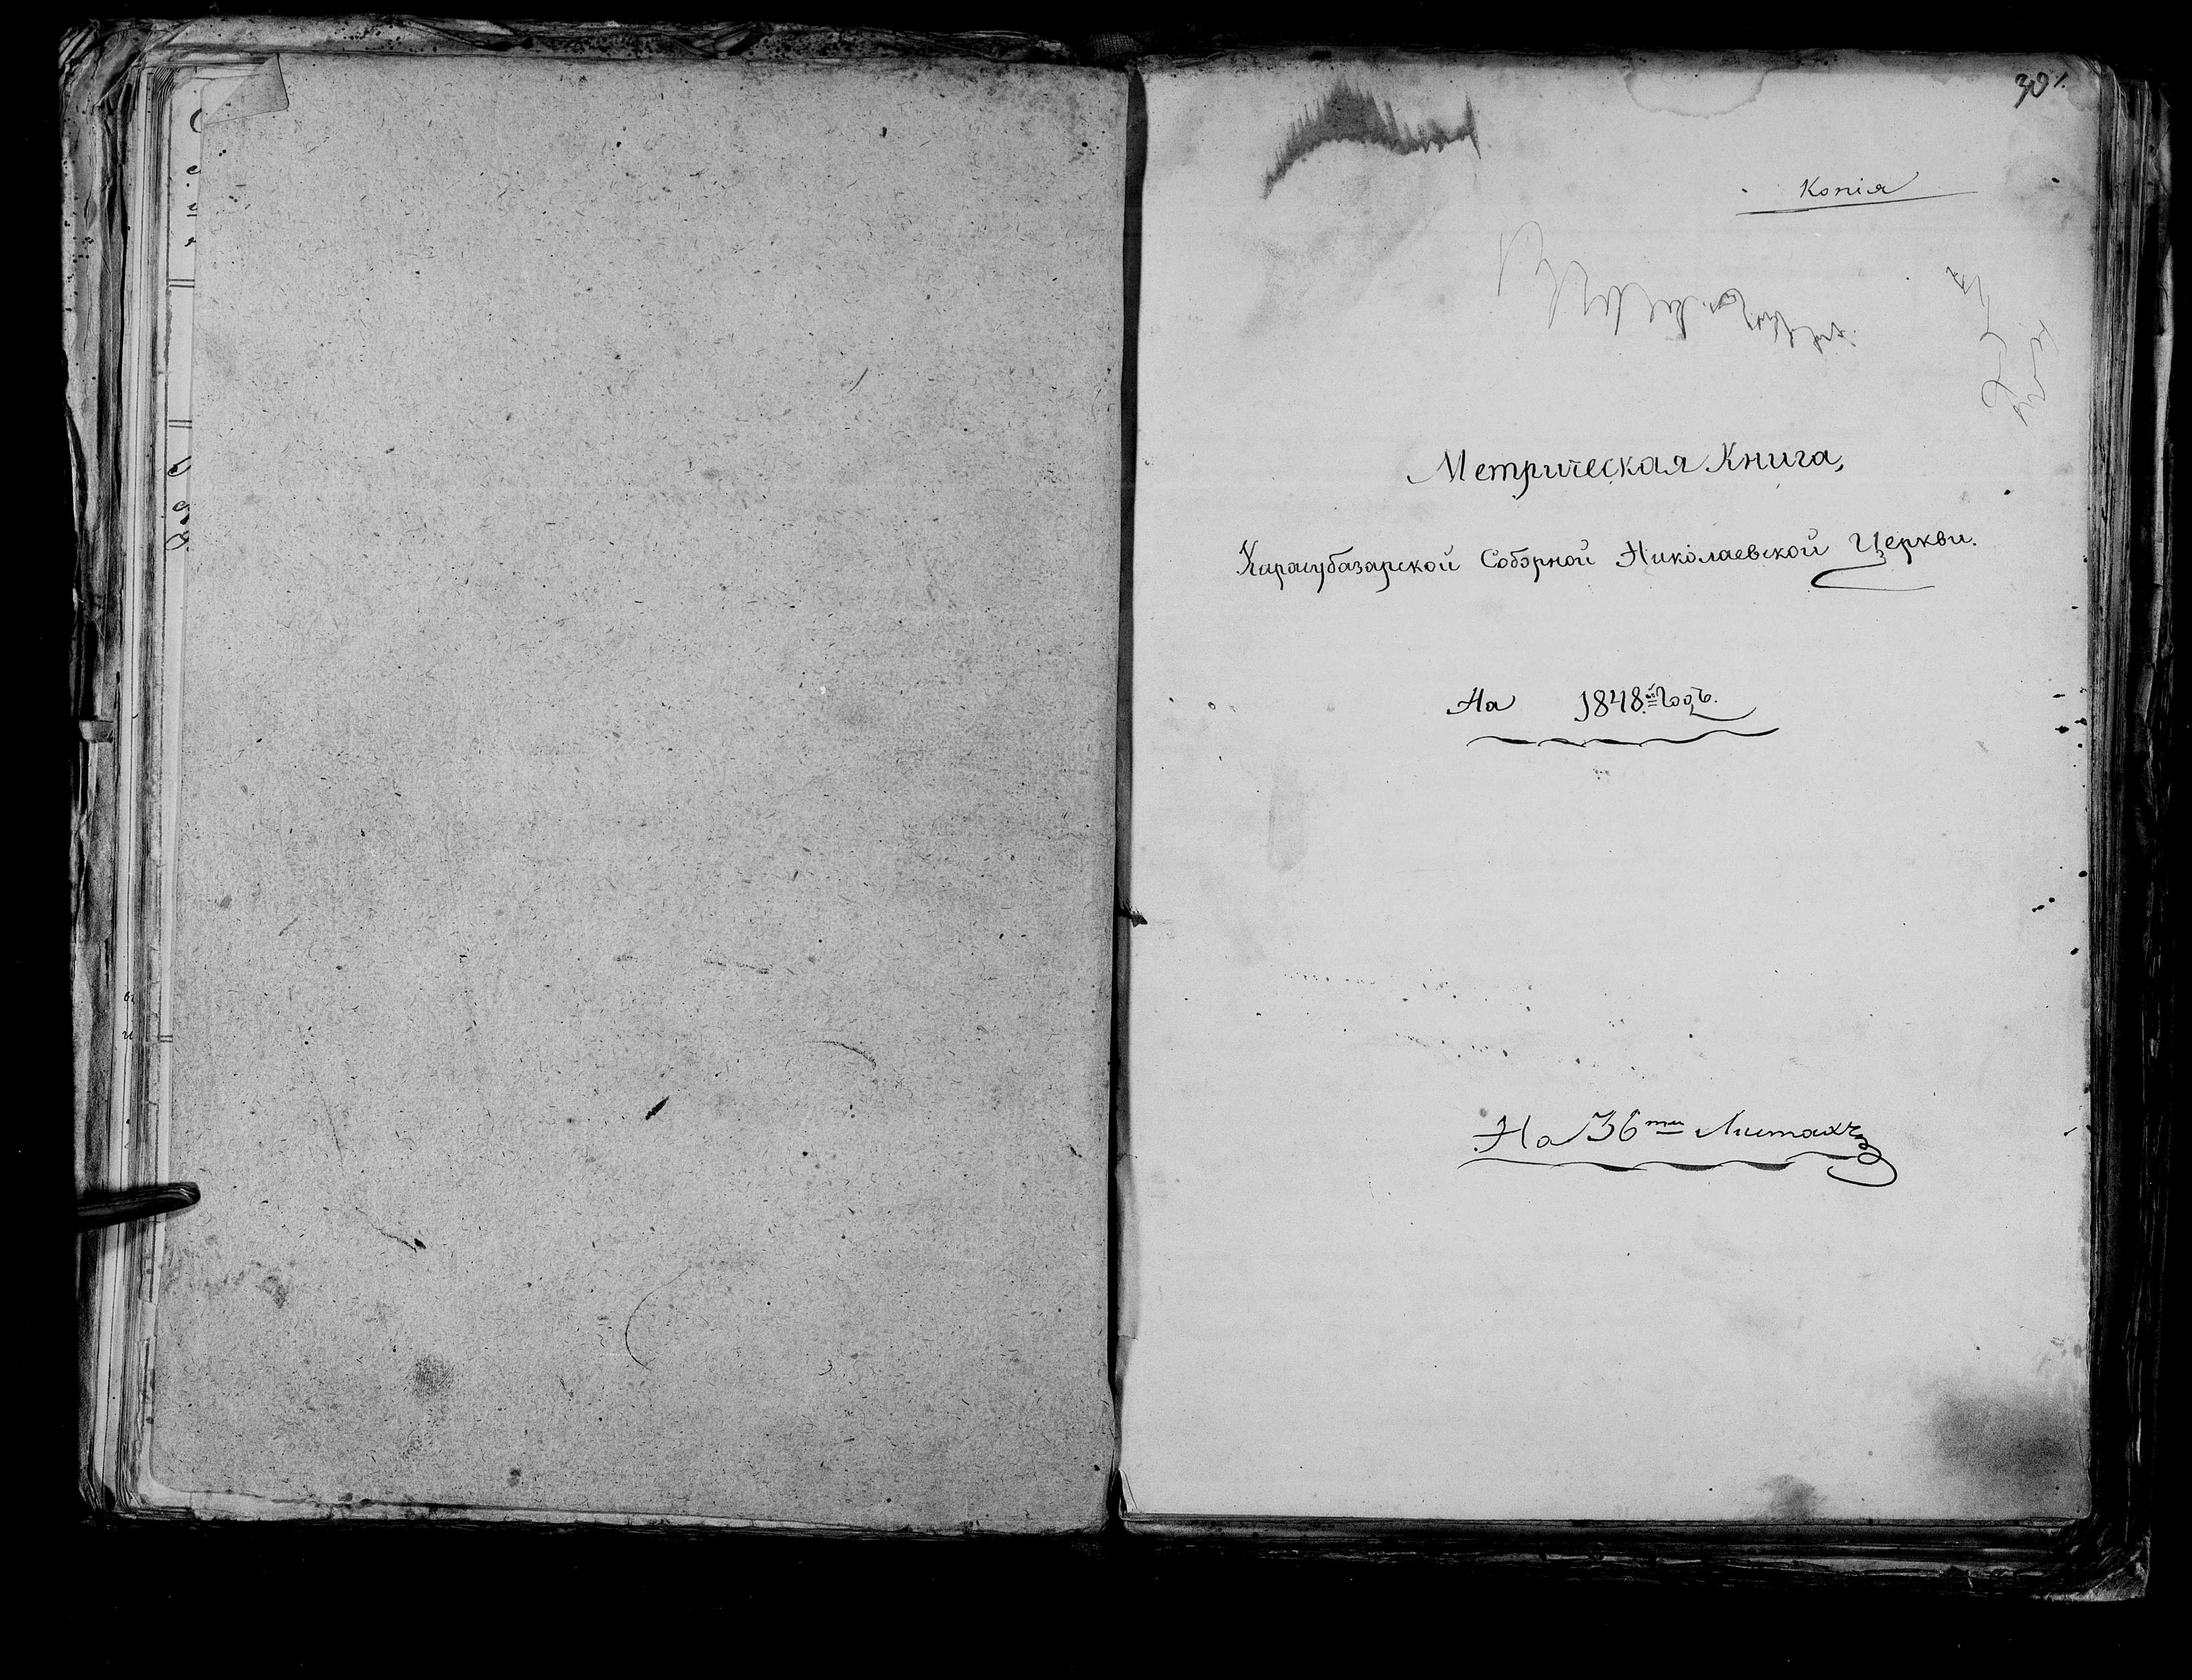 Копія
Метрическая Книга,
Карасубазарской Соборной Николаевской Церкви.
На 1848й Годъ.
На 36ти Листахъ